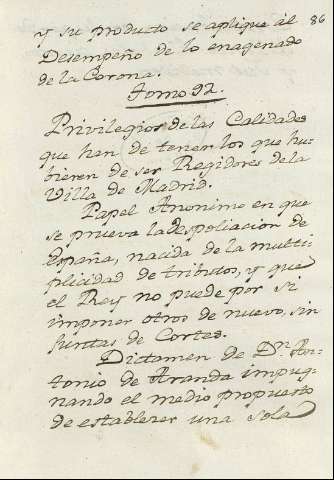 86
y su producto se aplique ál
Desempeño de lo enagenado
de la Corona.
Tomo 92.
Privilegios de las Calidades
que han de tener los que hu-
bieren de ser Regidores de la
Villa de Madrid.
Papel Anonimo en que
se prueva la despoliacion de
España, nacida de la multi-
plicidad de tributos, y que
el Rey no puede por si
imponer otros de nuevo, sin
Juntas de Cortes.
Dictamen de Dn. An-
tonio de Aranda impug-
nando el medio propuesto
de establezer una sola